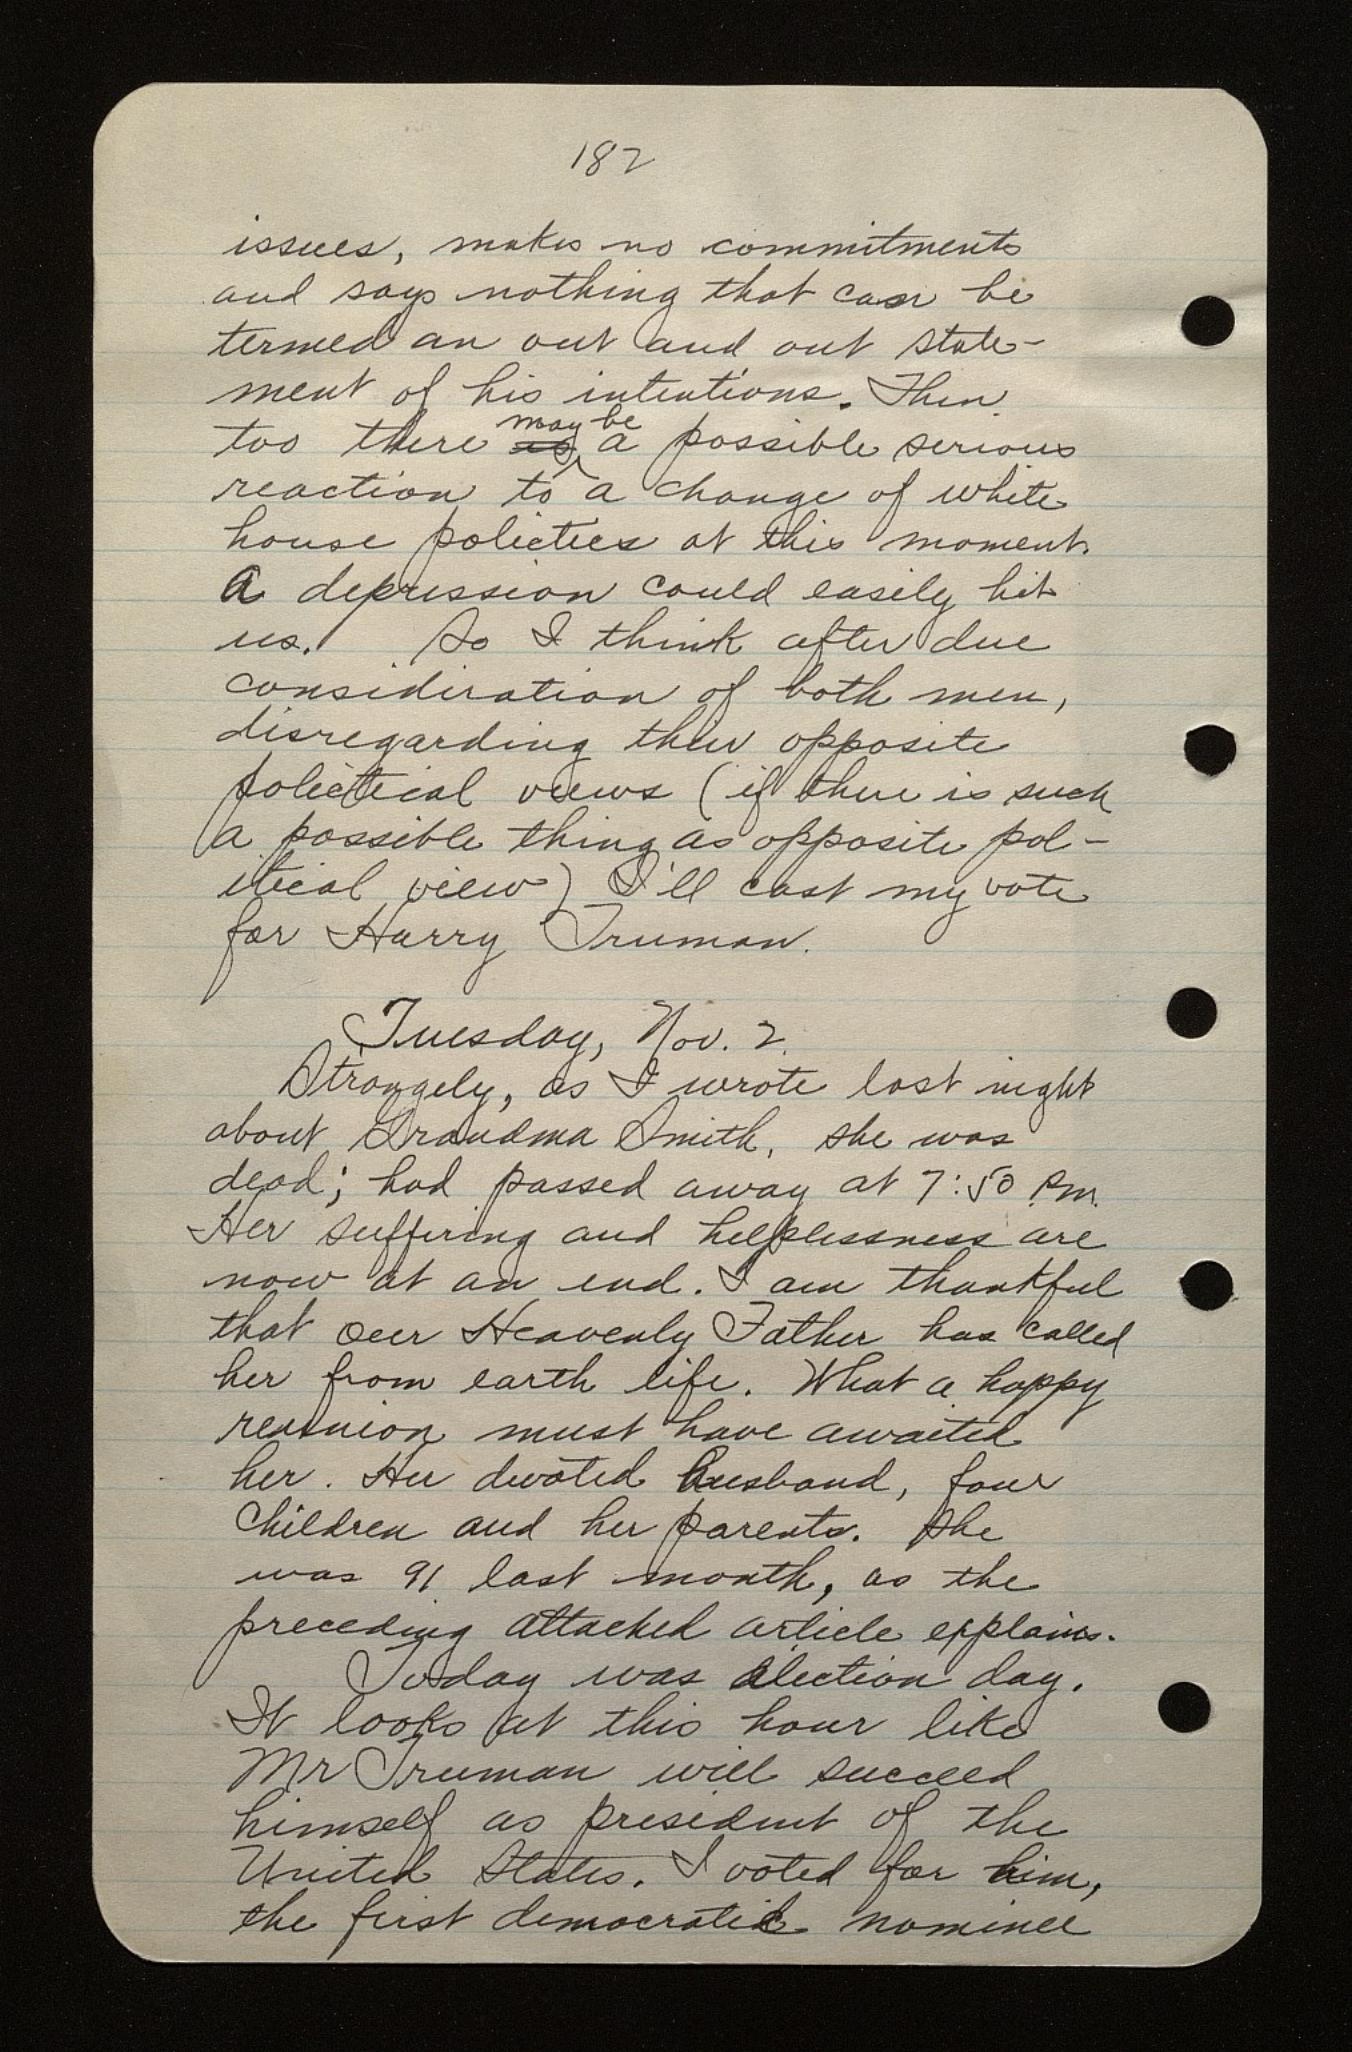 182
issues, makes no commitments
and says nothing that can be
termed an out and out state-
ment of his intentions. Then
too there is may be a possible serious
reaction to a change of white
house policties at this moment.
A depression could easily hit
us. So I think after due
consideration of both men,
disregarding their opposite
polictical views (if there is such
a possible thing as opposite pol-
itical view) I'll cast my vote
for Harry Truman.
Tuesday, Nov. 2.
Strangely, as I wrote last night
about Grandma Smith, she was
dead; had passed away at 7:50 P.m.
Her suffering and helplessness are
now at an end. I am thankful
that our Heavenly Father has called
her from earth life. What a happy
reunion must have awaited
her. Her devoted husband, four
children and her parents. She
was 91 last month, as the
preceding attached article explains.
Today was election day.
It looks at this hour like
Mr Truman will succeed
himself as president of the
United States. I voted for him,
the first democratic nominee